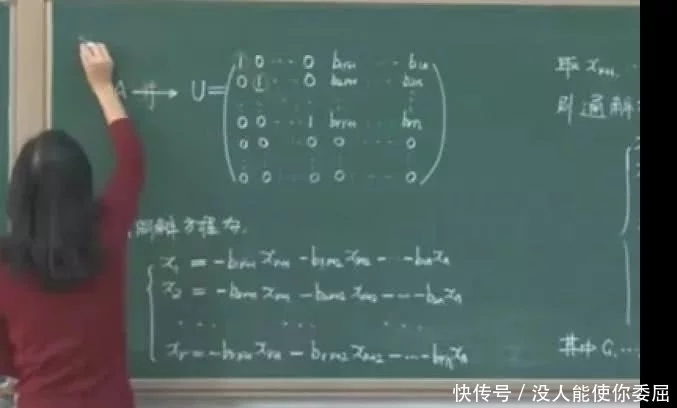 A 行→ U= ( 1 0 ··· 0 b₁ᵣ₊₁ ··· b₁ₙ
0 1 ··· 0 b₂ᵣ₊₁ ··· b₂ₙ
0 0 ··· 1 bᵣᵣ₊₁ ··· bᵣₙ
0 0 ··· 0 0 ··· 0
0 0 ··· 0 0 ··· 0 )
同解方程为
x₁ = -b₁ᵣ₊₁xᵣ₊₁ - b₁ᵣ₊₂xᵣ₊₂ - ··· - b₁ₙxₙ
x₂ = -b₂ᵣ₊₁xᵣ₊₁ - b₂ᵣ₊₂xᵣ₊₂ - ··· - b₂ₙxₙ
··· ··· ···
xᵣ = -bᵣᵣ₊₁xᵣ₊₁ - bᵣᵣ₊₂xᵣ₊₂ - ··· - bᵣₙxₙ
取 xᵣ₊₁, ··
则通解
其中 C₁ ···
快传号／没人能使你委屈